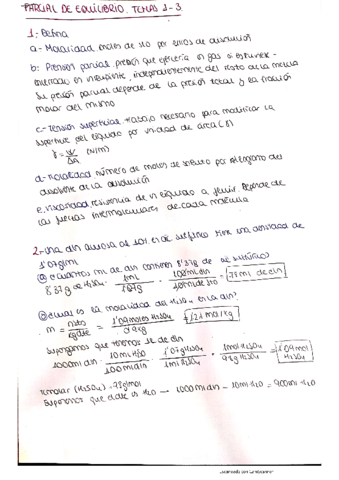 PARCIAL DE EQUILIBRIO. TEMAS 1-3
1.- Defina
a- Molaridad moles de sto por litros de disolución
b- Presion parcial: presión que ejercería un gas si estuviese
en el recipiente, independientemente del resto de la mezcla
Su presión parcial depende de la presión total y la fracción
molar del mismo
c- Tension superficial: trabajo necesario para modificar la
superficie del líquido por unidad de área (γ)
γ = W/ΔA (N/m)
d- Molalidad número de moles de soluto por kilogramo del
disolvente de la disolución
e. viscosidad resistencia de un líquido a fluir. Depende de
las fuerzas intermoleculares de cada molécula
2.- Una din acuosa al 10% en de sulfúrico tiene una densidad de
1'07g/ml
a) cuantos ml de din contienen 8'37g de ac sulfúrico
8.37g de H₂SO₄ · 1ml · 100ml din = 78ml de din
b) cual es la molalidad del H₂SO₄ en la din?
m = = 1'09moles H₂SO₄ / 0'9kg = 1'21 mol/kg
Supongamos que tenemos 1L de din
1000ml din · 10ml / 100ml din · 1'07g H₂SO₄ / 1ml H₂SO₄ · 1mol H₂SO₄ / 98g H₂SO₄ = 1'09 mol H₂SO₄
(H₂SO₄) = 98g/mol
Suponemos que dte es H₂O → 1000ml din - = 900ml H₂O